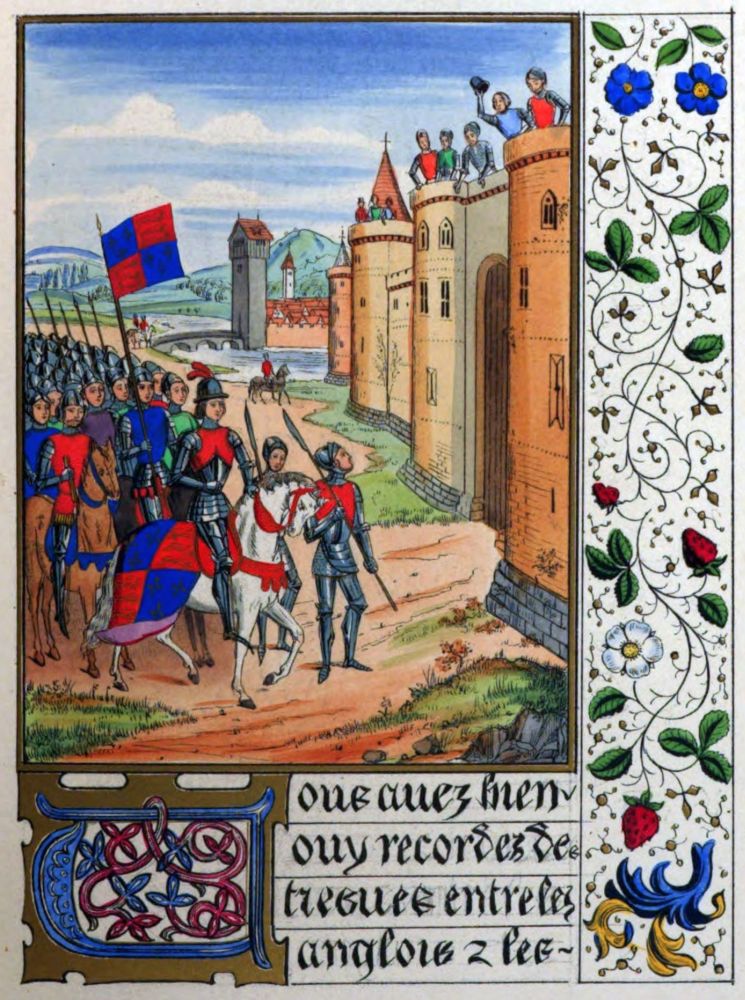 Vous auez bien
ouy recordez des
tresues entre les
anglois 2 les-